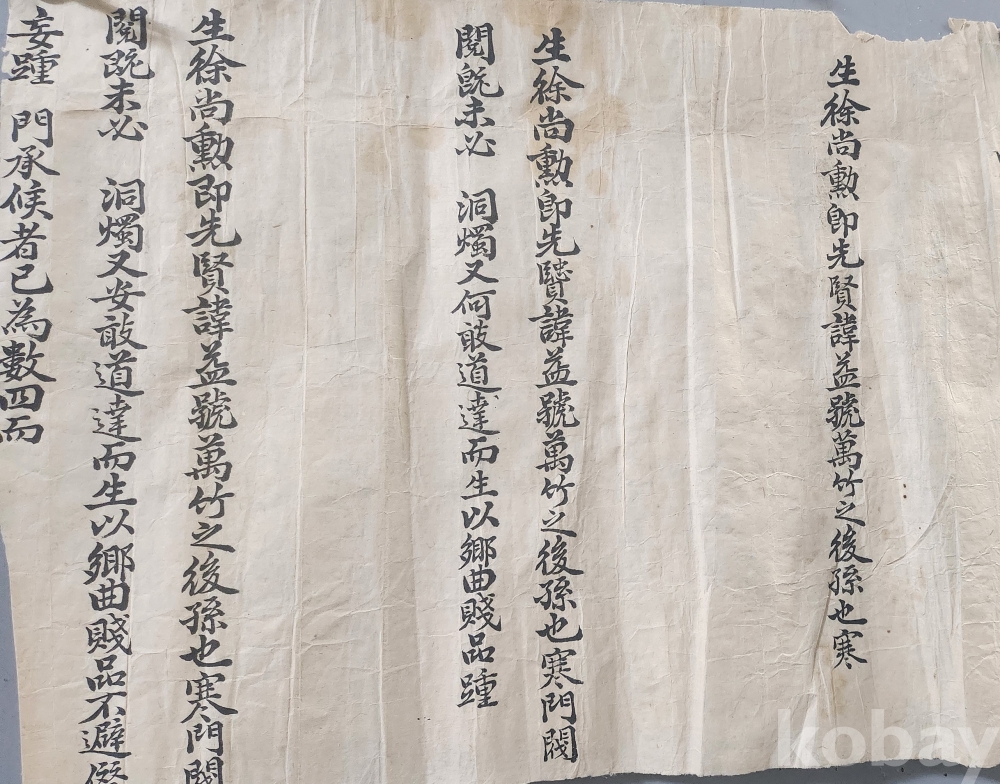 生徐尚勳即先賢諱益號萬竹之後孫也寒
生徐尚勳即先賢諱益號萬竹之後孫也寒門閥
閱旣未必 洞燭又何敢道達而生以鄕曲賤品踵
生徐尚勳即先賢諱益號萬竹之後孫也寒門閥
閱旣未必 洞燭又安敢道達而生以鄕曲賤品不避
妄踵 門承候者已為數四而
kobay